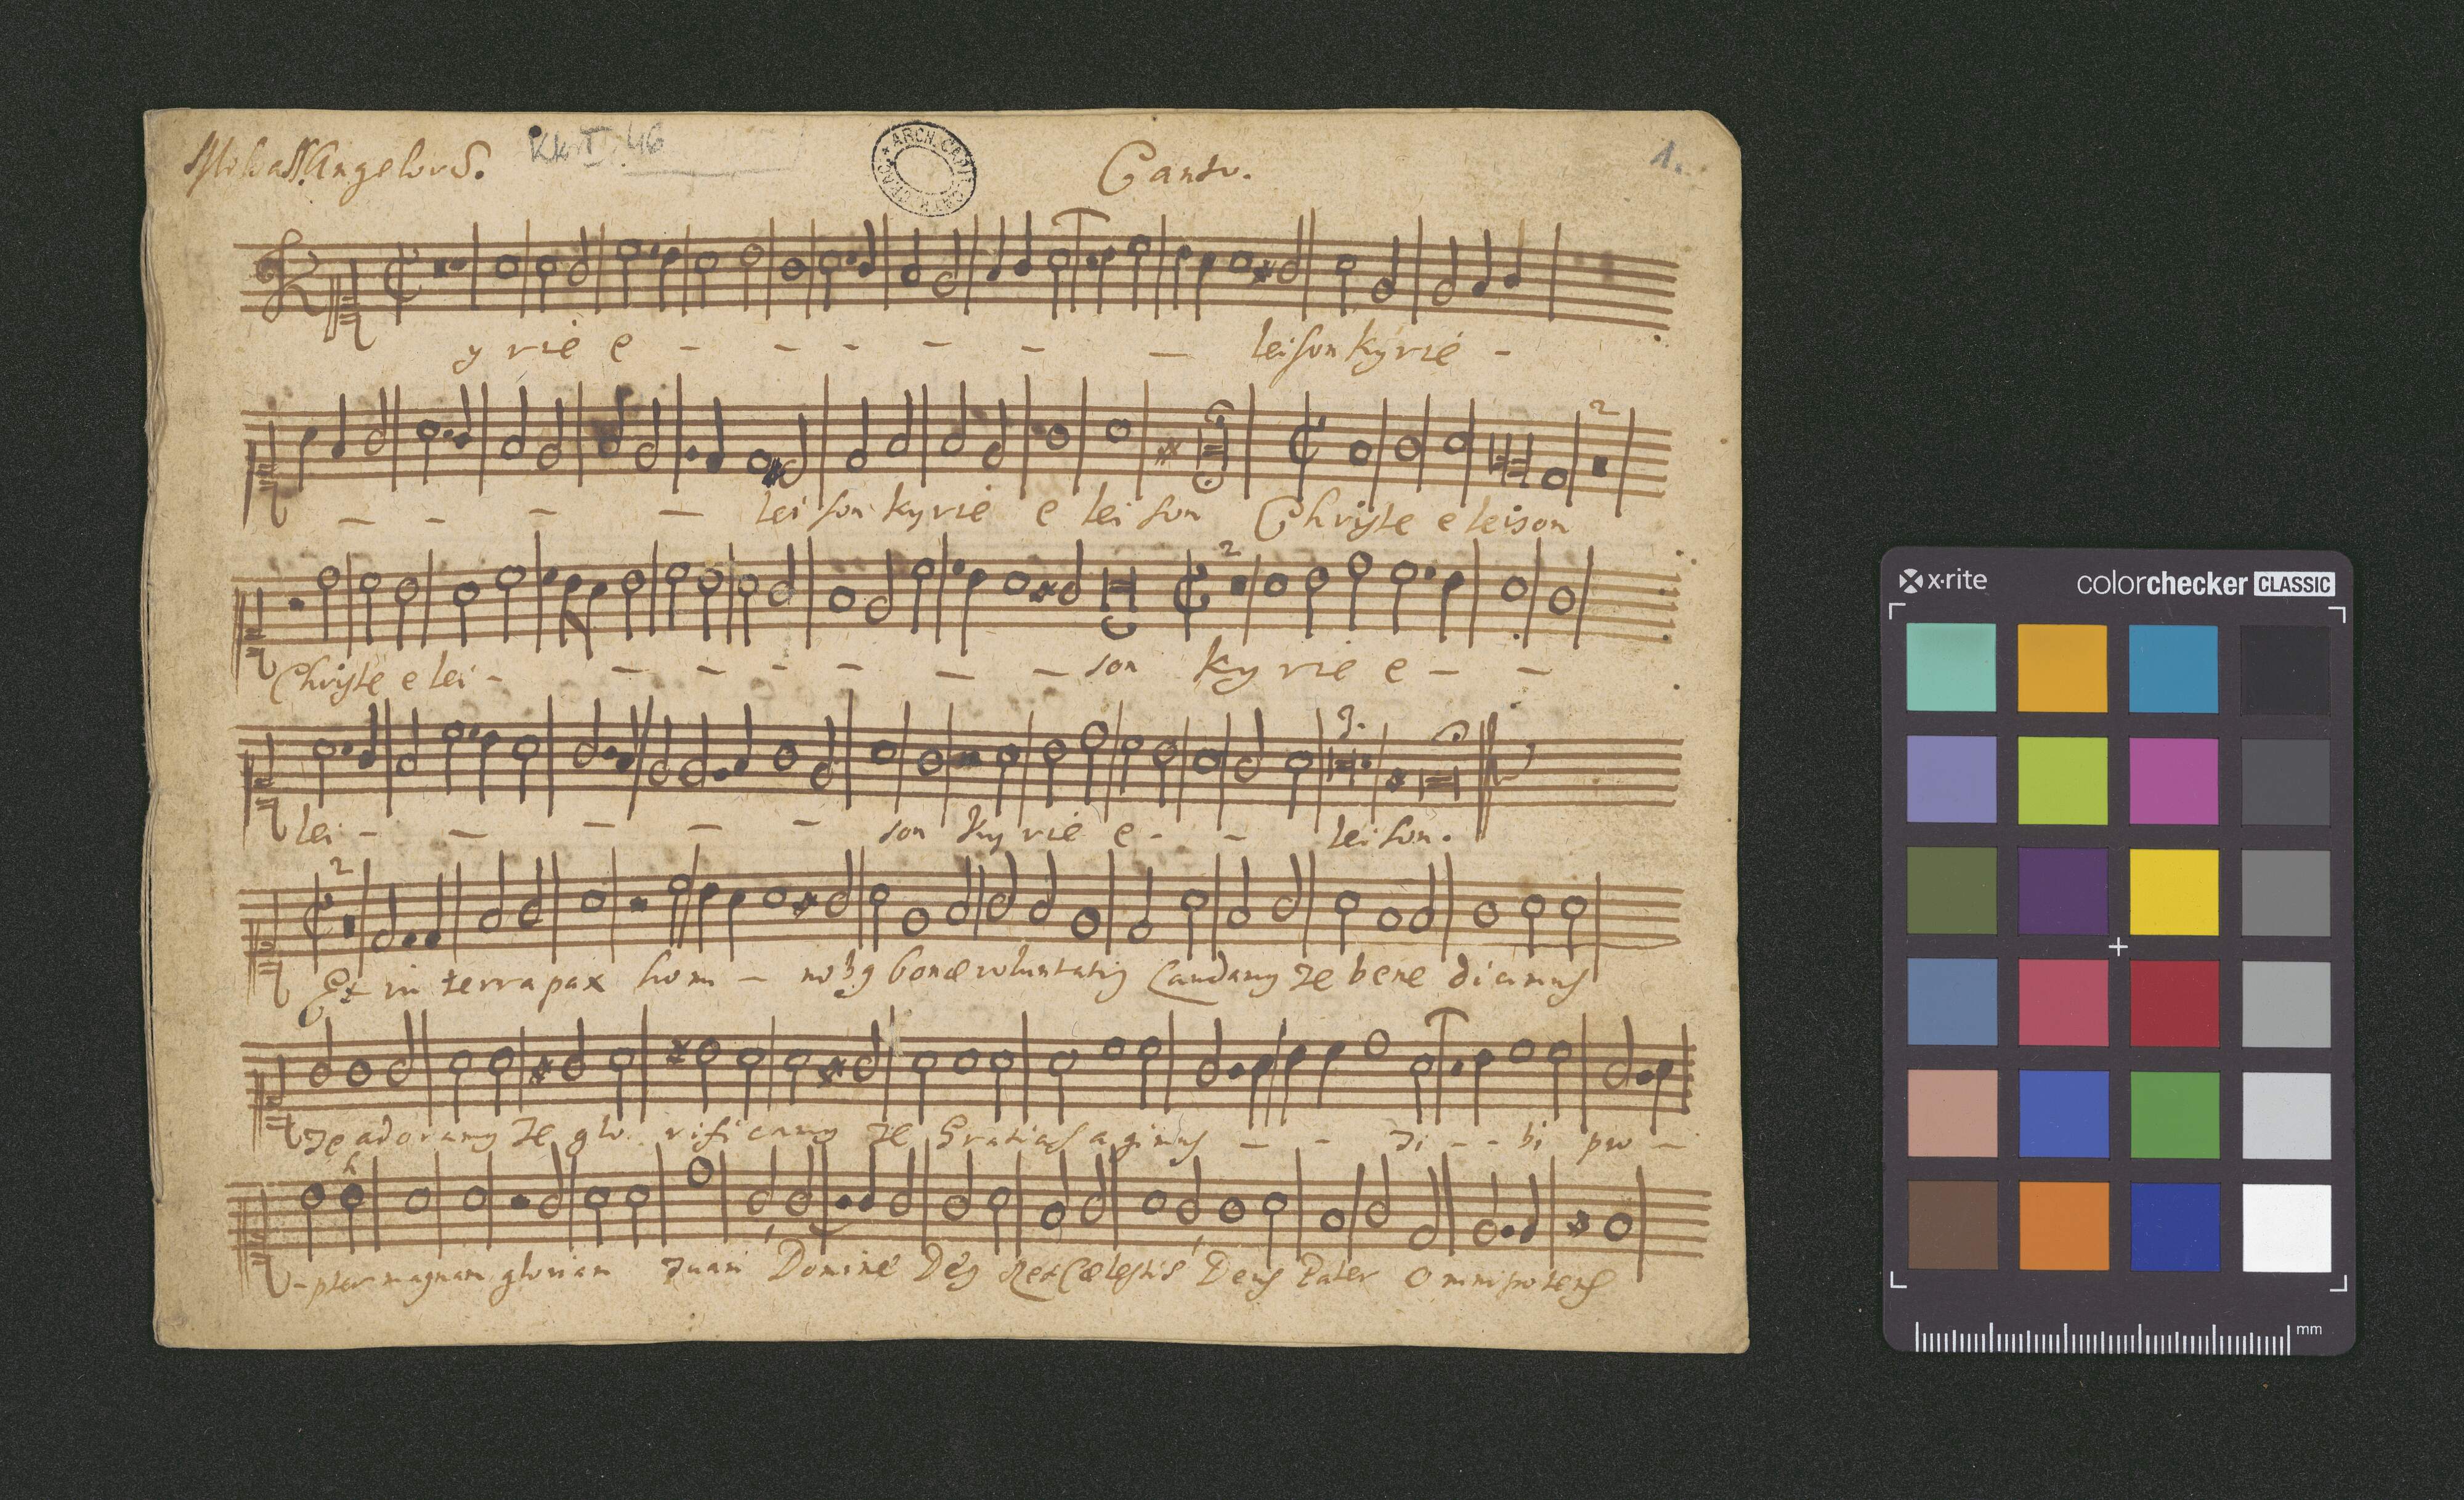 Angelorū. KkI.46 Canto. 1.
ARCH. CAPIT. CATH. CRAC.
Kyrie e - - - - - - leison kyrie -
- - - - leison kyrie e leison Christe eleison
2
Christe elei - - - - - - - son Kyrie e - -
2
lei - - - - - son Kyrie e - - leison.
3.
2
Et in terra pax homi - nibg bonæ voluntatis Laudamg te bene dicimus
Te adoramg te glo rificamg te Gratias agimus - - Ti - - bi pro -
- pter magnam gloriam Tuam Domine Deg Rex Cælestis Deus Pater Omnipotens
x·rite colorchecker CLASSIC
mm